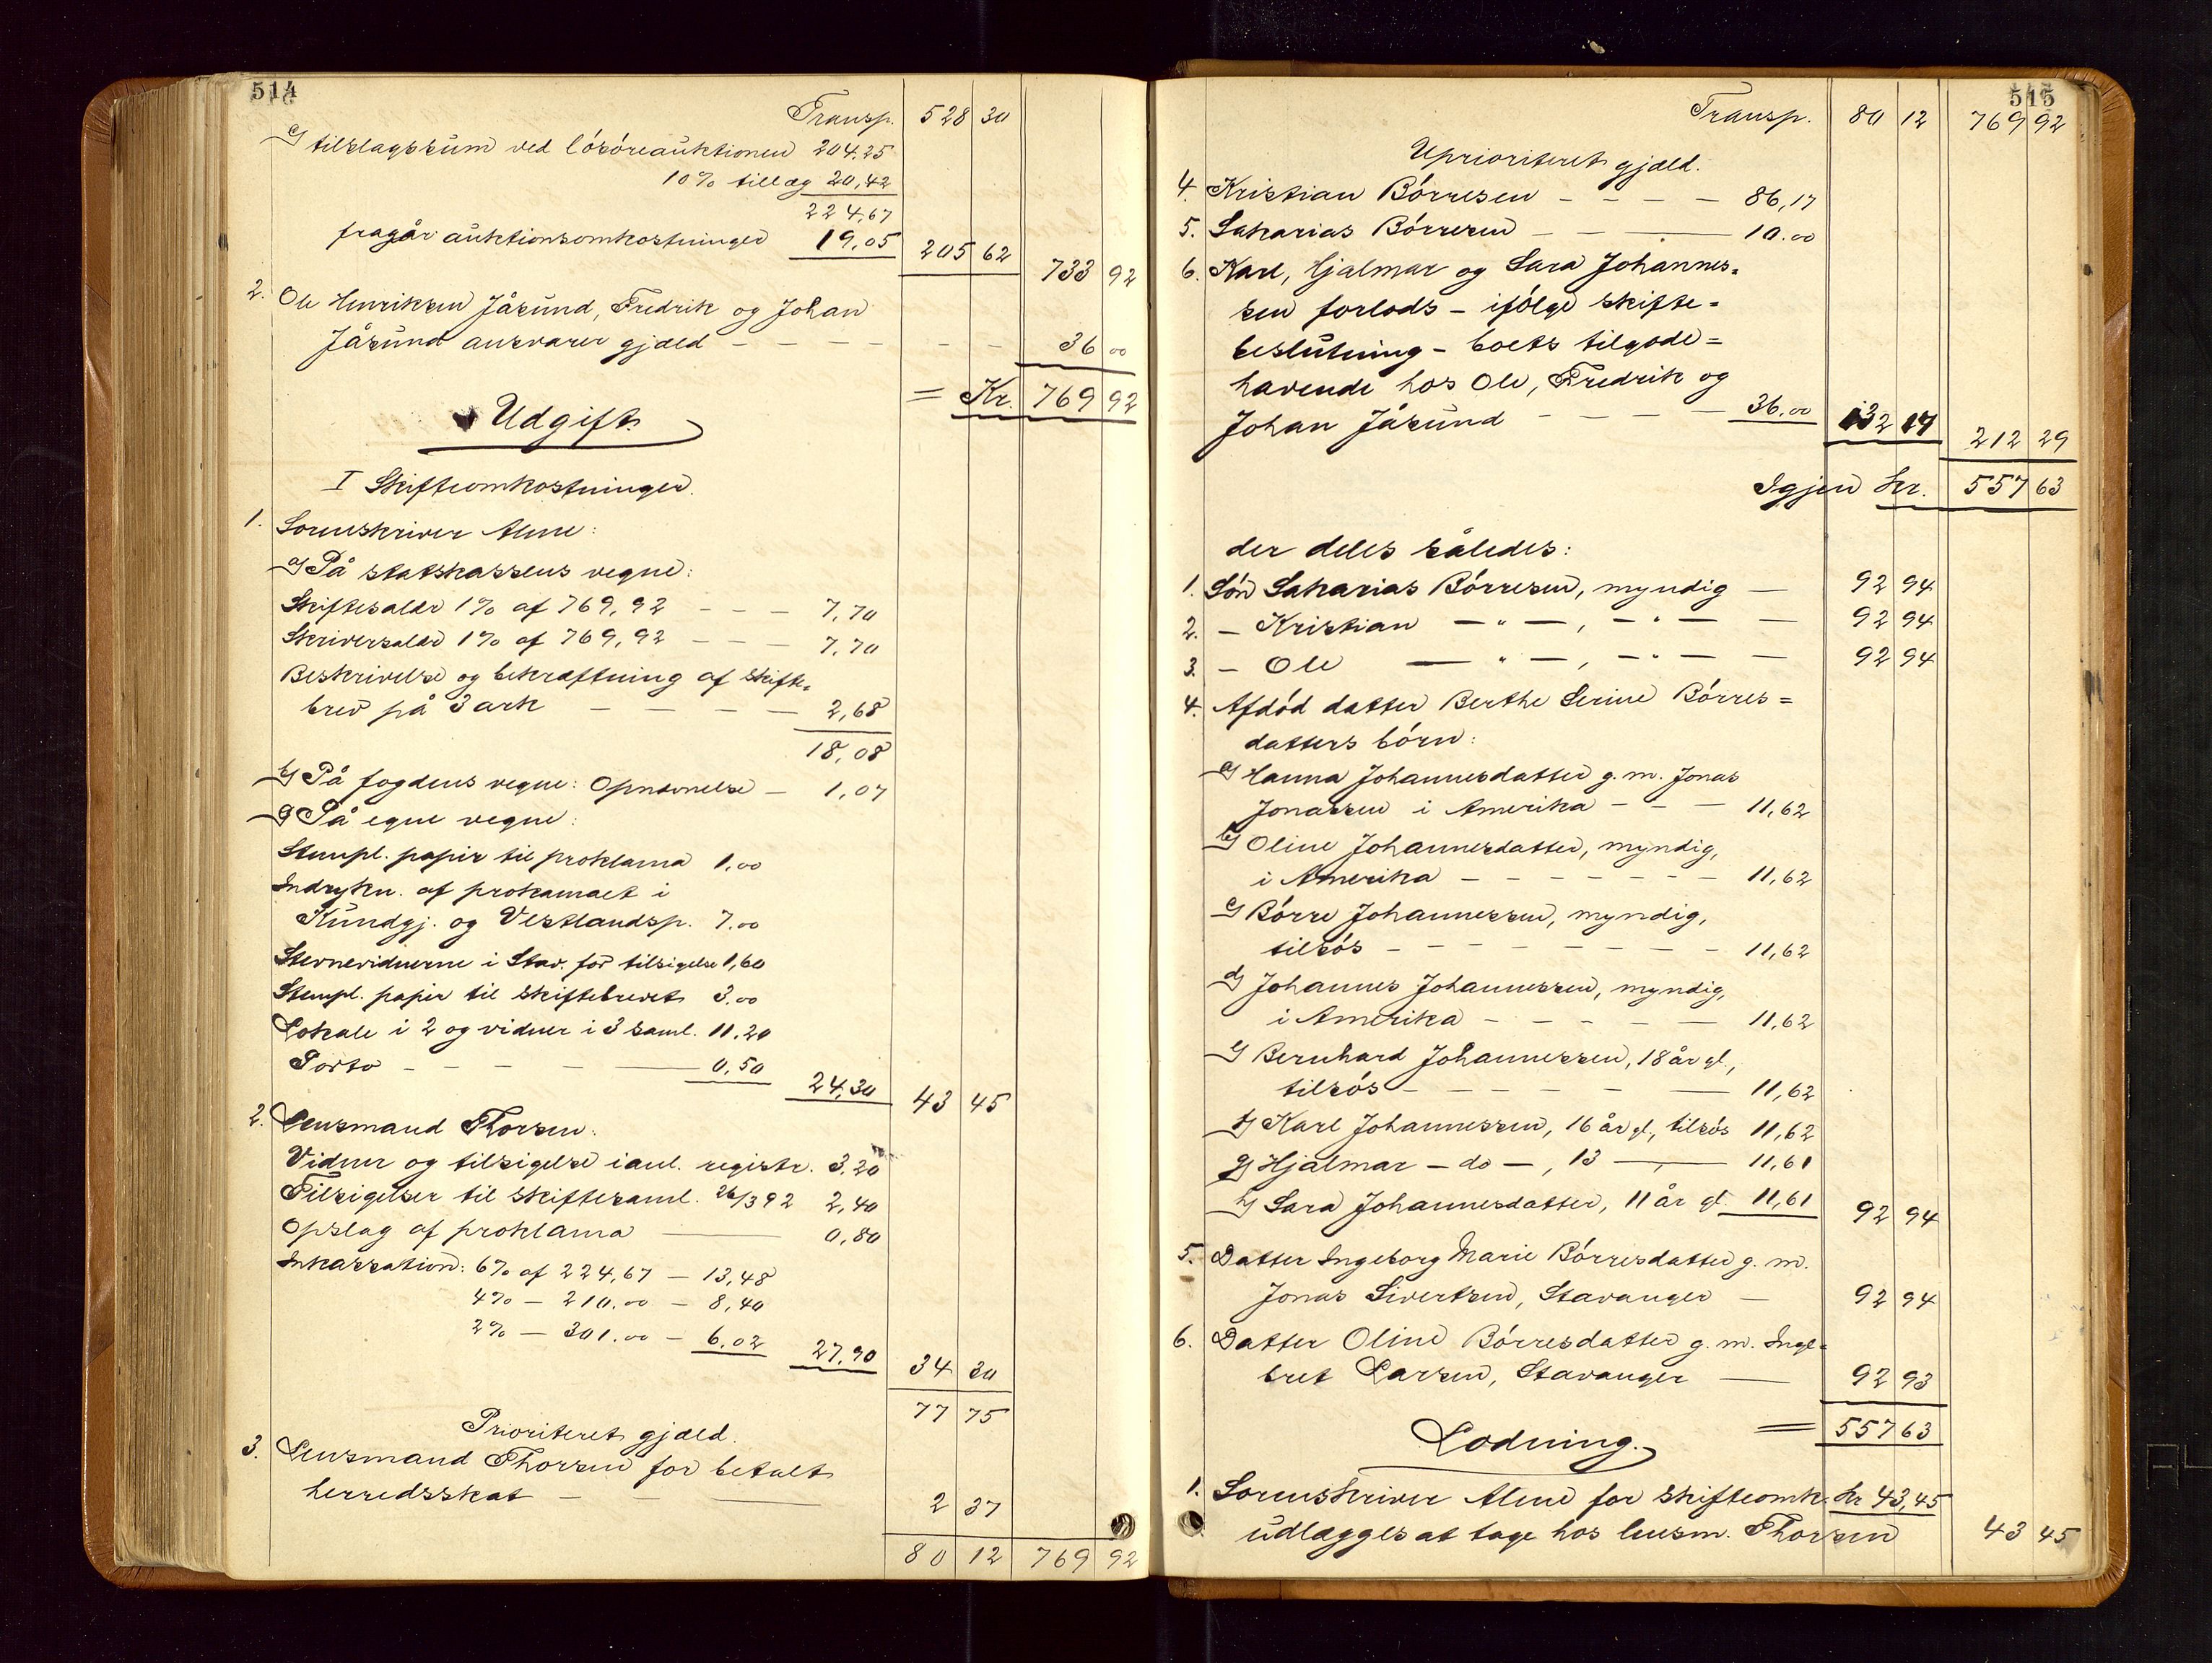 514
Transp. 528 30
c) tilslagssum ved løsøreauktionen 204.25
10% tillæg 20,42
224,67
fragår auktionsomkostninger 19,05 205 62
733 92
2. Ole Henriksen Jåsund, Fredrik og Johan
Jåsund ansvarer gjæld – – – – – – 36 00
= Kr. 769 92
Udgift.
I Skifteomkostninger.
1. Sorenskriver Alme:
a) På statskassens vegne:
Skiftesalær 1% af 769,92 – – – 7,70
Skriversalær 1% af 769,92 – – – 7,70
Beskrivelse og bekræftning af skifte=
brev på 3 ark – – – – 2,68
18,08
b) På fogdens vegne: Opnævnelse – 1,07
c) På egne vegne:
Stempl. papir til proklama 1,00
Indrykn. af prokamaet i
Kundgj. og Vestlandsp. 7.00
Stevnevidnerne i Stav. for tilsigelse 1,60
Stempl. papir til skiftebrevet 3.00
Lokale i 2 og vidner i 3 saml. 11.20
Porto – – – – 0,50
24,30 43 45
2. Lensmand Thorsen:
Vidner og tilsigelse i anl. registr. 3.20
Tilsigelser til skiftesaml. 26/3 92 2,40
Opslag af proklama — 0,80
Inkassation: 6% af 224,67 – 13,48
4% – 210.00 – 8,40
2% – 301.00 – 6.02 27,90 34 30
77 75
Prioriteret gjæld.
3. Lensmand Thorsen for betalt
herredsskat – — 2 37
80 12 769 92
515
Transp. 80 12 769 92
Uprioriteret gjæld.
4. Kristian Børresen – – – – 86,17
5. Sakarias Børresen – – — 10.00
6. Karl, Hjalmar og Sara Johannes=
sen forlods – ifølge skifte=
beslutning – boets tilgode=
havende hos Ole, Fredrik og
Johan Jåsund – – – – 36.00 132 17
212 29
Igjen Kr. 557 63
der deles således:
1. Søn Sakarias Børresen, myndig — 92 94
2. – Kristian — " —, – " — — 92 94
3. – Ole — " —, – " — — 92 94
4. Afdød datter Berthe Serine Børres=
datters børn:
a) Hanna Johannesdatter g. m. Jonas
Jonassen i Amerika – – – 11,62
b) Oline Johannesdatter, myndig,
i Amerika – – – – – – – 11,62
c) Børre Johannessen, myndig,
tilsøs – – – – – – – – 11,62
d) Johannes Johannessen, myndig,
i Amerika – – – – – 11,62
e) Bernhard Johannessen, 18 år gl.,
tilsøs – – – – – — 11,62
f) Karl Johannessen, 16 år gl., tilsøs 11,62
g) Hjalmar – do –, 13 — „ — 11,61
h) Sara Johannesdatter, 11 år gl. 11,61 92 94
5. Datter Ingeborg Marie Børresdatter g. m.
Jonas Sivertsen, Stavanger — 92 94
6. Datter Oline Børresdatter g. m. Inge=
bret Larsen, Stavanger — 92 93
= 557 63
Lodning.
1. Sorenskriver Alme for skifteomk. Kr 43,45
udlægges at tage hos lensm. Thorsen 43 45